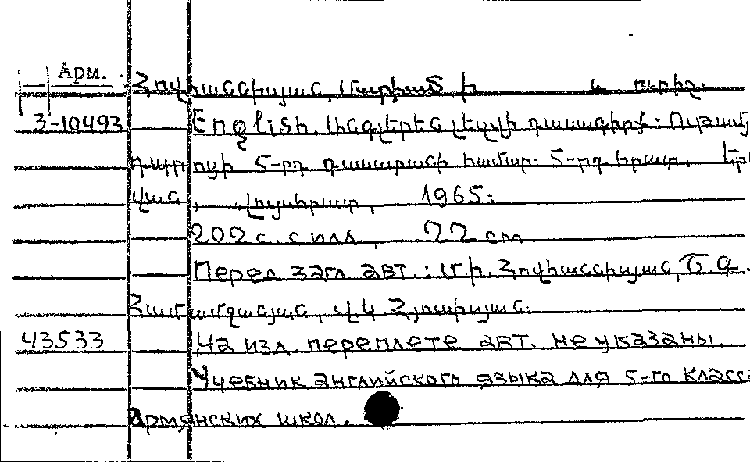 Арм. Հովհաննիսյան, Մարիամ Ի և ուրիշ.
3-10493 English. Անգլերեն լեզվի դասագիրք: Ութամյա
դպրոցի 5-րդ դասարանի համար. 5-րդ հրատ. Եր
ևան, Լույս, 1965:
202 с. с илл, 22 см
Перед загл. авт.: Մ. Ի. Հովհաննիսյան,
43533 На изд. переплете авт. не указаны.
Учебник английского языка для 5-го класса
армянских школ.